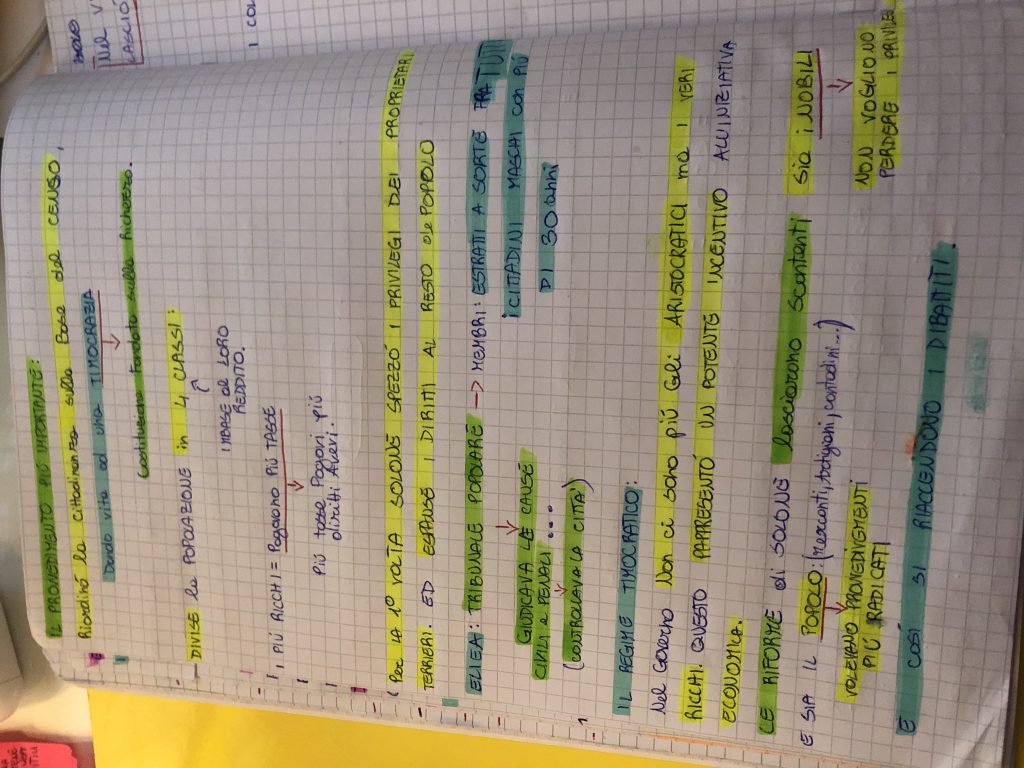 IL PROVVEDIMENTO PIÙ IMPORTANTE:
Riordinò la cittadinanza sulla base del CENSO,
Dando vita ad una TIMOCRAZIA
Costituzione fondata sulla ricchezza.
DIVISE la POPOLAZIONE in 4 CLASSI:
IN BASE al LORO
REDDITO.
I PIÙ RICCHI = Pagano PIÙ TASSE
PIÙ tasse Pagavi, più
diritti Avevi.
Per LA 1° VOLTA SOLONE SPEZZÒ I PRIVILEGI DEI PROPRIETARI
TERRIERI. ED ESPANSE I DIRITTI AL RESTO del POPOLO
ELIEA: TRIBUNALE POPOLARE -> MEMBRI: ESTRATTI A SORTE TRA TUTTI
i CITTADINI MASCHI con PIÙ
DI 30 anni
GIUDICAVA LE CAUSE
CIVILI e PENALI...
(CONTROLLAVA LA CITTÀ)
IL REGIME TIMOCRATICO:
Nel Governo Non ci sono più Gli ARISTOCRATICI ma i VERI
RICCHI. QUESTO RAPPRESENTÒ UN POTENTE INCENTIVO ALL'INIZIATIVA
ECONOMICA.
LE RIFORME di SOLONE lasciarono scontenti sia i NOBILI
NON VOGLIONO
PERDERE I PRIVILEGI
E SIA IL POPOLO: (mercanti, artigiani, contadini...)
VOLEVANO PROVVEDIMENTI
PIÙ RADICATI
E COSÌ SI RIACCENDONO I DIBATTITI.